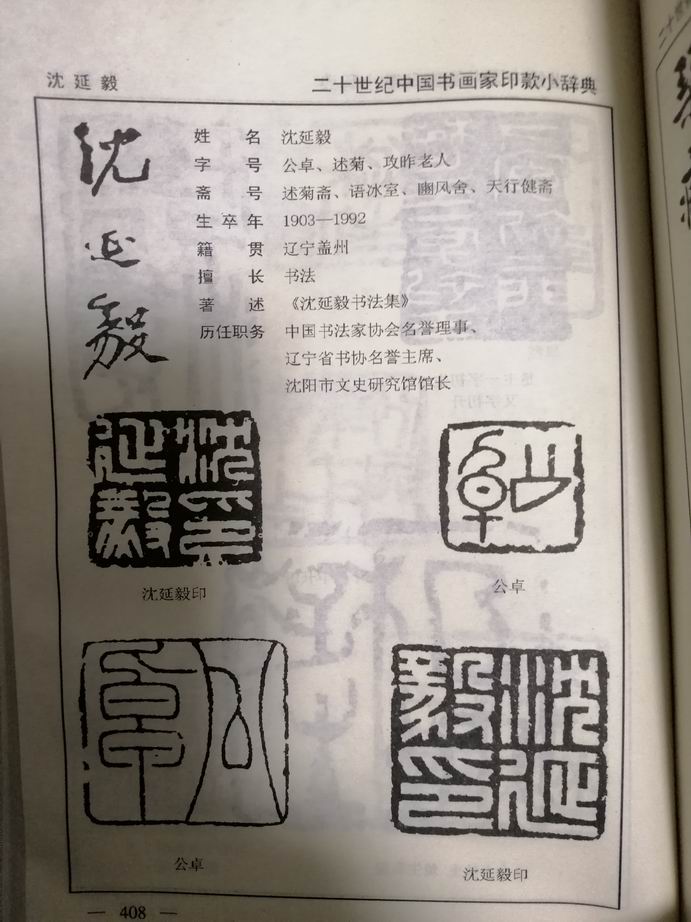 沈延毅
二十世纪中国书画家印款小辞典
沈延毅
姓 名 沈延毅
字 号 公卓、述菊、攻昨老人
斋 号 述菊斋、语冰室、豳风舍、天行健斋
生卒年 1903—1992
籍 贯 辽宁盖州
擅 长 书法
著 述 《沈延毅书法集》
历任职务 中国书法家协会名誉理事、
辽宁省书协名誉主席、
沈阳市文史研究馆馆长
沈延毅印
沈延毅印
公卓
公卓
公卓
公卓
沈延毅印
沈延毅印
— 408 —